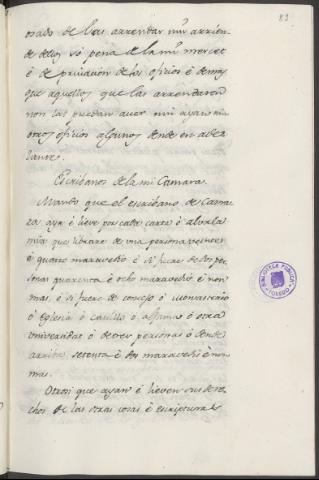 83
osado de las arrendar nin arrien
de dellos só pena de la mi merced
é de privacion de los oficios é demas
que aquellos que las arrendaren
non las puedan aver nin ayan nin
otros oficios algunos dende en adela
lante.
Escribanos de la mi Camara.
Mando que el escribano de Cama
ra aya é lieve por cada carta é alvala
mia que librare de una persona veinte
é quatro maravedis é si fuere de dos per
sonas quarenta é ocho maravedis é non
mas, é si fuere de concejo ó Monasterio
ó Eglesia ó Cavildo ó Aljama ó otra
universidad ó de tres personas ó dende
arriba setenta é dos maravedis é non
mas.
Otrosi que ayan é lieven sus dere
chos de las otras cosas é escripturas
BIBLIOTECA PUBLICA
TOLEDO